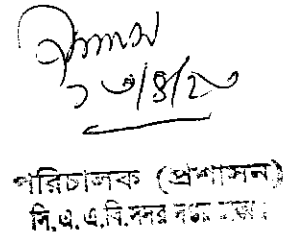 ১৩/৪/২০
পরিচালক (প্রশাসন)
সি.এ.এ.বি. সদর দপ্তর ঢাকা।